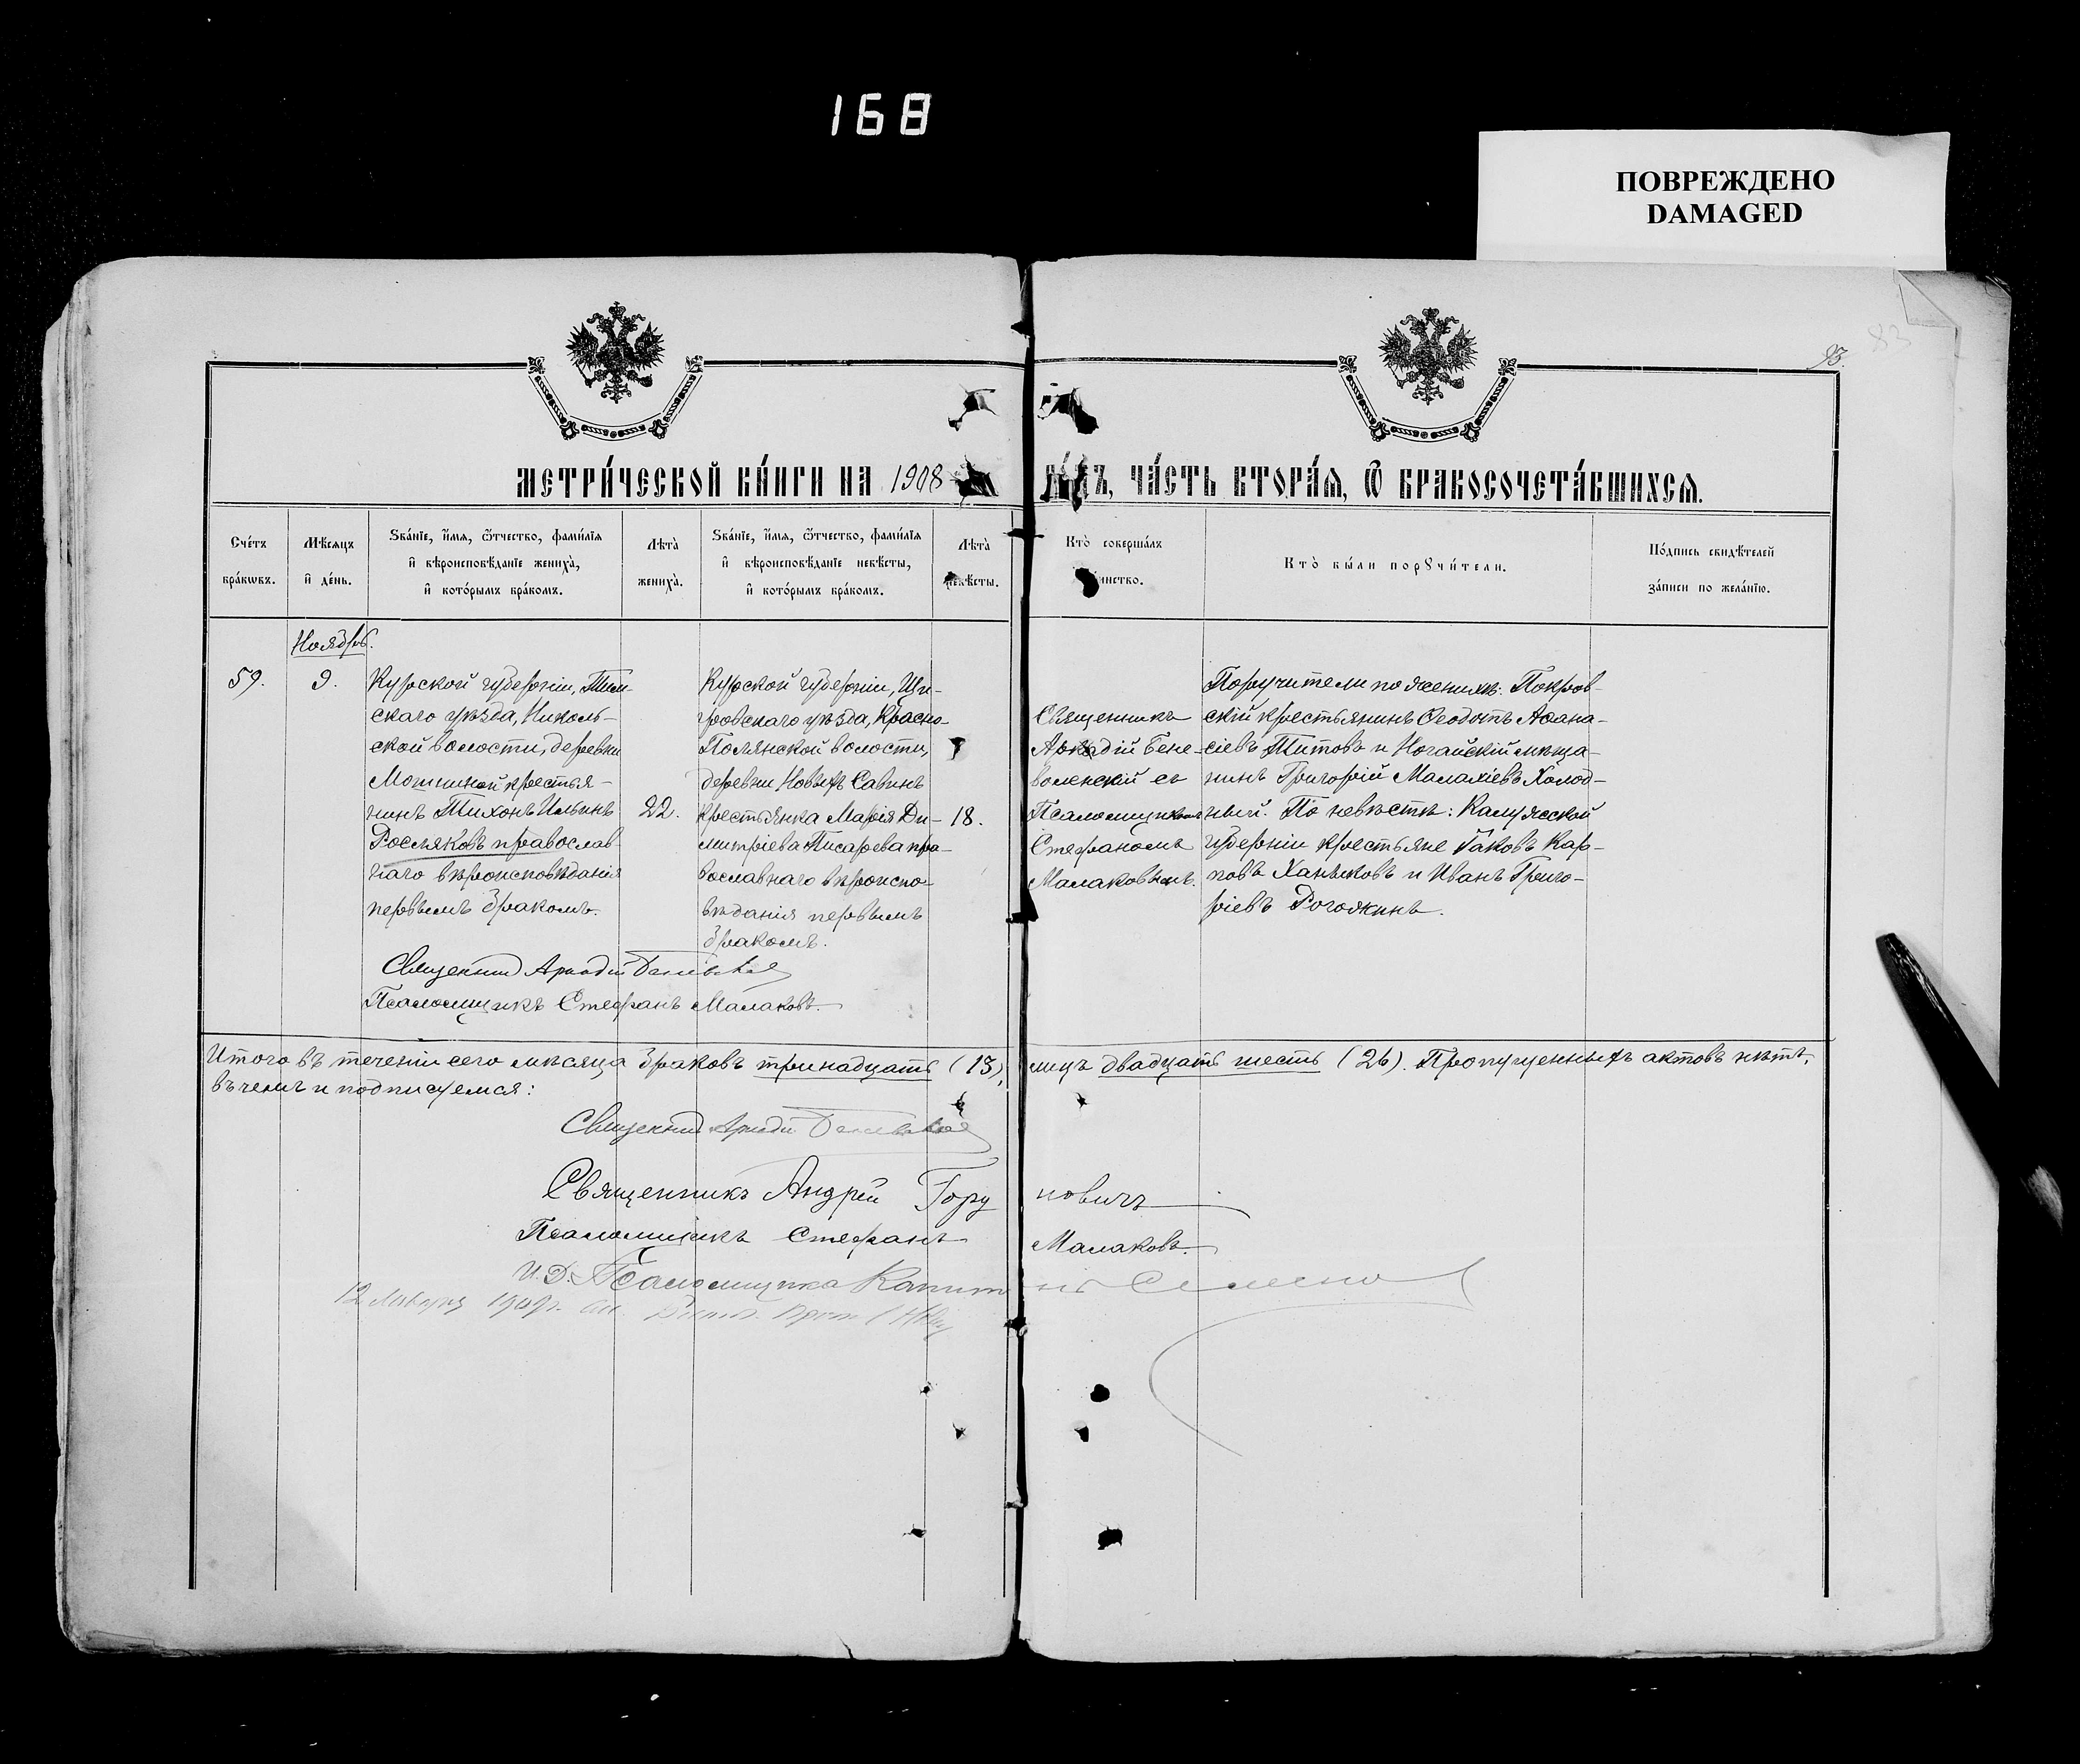 168
ПОВРЕЖДЕНО
DAMAGED
93.
МЕТРИ́ЧЕСКОЙ КНИ́ГИ НА 1908 ГО́ДЪ, ЧА́СТЬ ВТОРА́Я, Ѿ БРАКОСОЧЕТА́ВШИХСЯ.
Сче́тъ
бра́кѡвъ.
Мѣ́сяцъ
и҆ де́нь.
Ѕва́нїе, и҆́мя, ѻ҆́тчество, фами́лїя
и҆ вѣроисповѣ́данїе жениха̀,
и҆ кото́рымъ бра́комъ.
Лѣта̀
жениха̀.
Ѕва́нїе, и҆́мя, ѻ҆́тчество, фами́лїя
и҆ вѣроисповѣ́данїе невѣ́сты,
и҆ кото́рымъ бра́комъ.
Лѣта̀
невѣ́сты.
Кто̀ соверша́лъ
таинство.
Кто̀ бы́ли порꙋчи́тели.
По́дпись свидѣ́телей
за́писи по жела́нїю.
Ноябрь.
59.
9.
Курской губерніи, Тим-
скаго уѣзда, Николь-
ской волости, деревни
Мошниной крестья-
нинъ Тихонъ Ильинъ
Росляковъ православ-
наго вѣроисповѣданія
первымъ бракомъ.
22.
Курской губерніи, Щи-
гровскаго уѣзда, Красно-
Полянской волости,
деревни Новыхъ Савинъ
крестьянка Марія Ди-
митріева Писарева пра-
вославнаго вѣроиспо-
вѣданія первымъ
бракомъ.
18.
Священникъ
Аркадій Бене-
воленскій съ
Псаломщикомъ
Стефаномъ
Малаковымъ.
Поручители по женихѣ: Покров-
скій крестьянинъ Ѳеодотъ Аѳана-
сіевъ Титовъ и Ногайскій мѣща-
нинъ Григорій Малахіевъ Холод-
ный. По невѣстѣ: Калужской
губерніи крестьяне Іаковъ Кар-
повъ Ханыковъ и Иванъ Григо-
ріевъ Рогожкинъ.
Священникъ Аркадій
Псаломщикъ Стефанъ Малаковъ.
Итого въ теченіи сего мѣсяца браковъ тринадцать (13), лицъ двадцать шесть (26). Пропущенныхъ актовъ нѣтъ,
въ чемъ и подписуемся:
Священникъ Аркадій
Священникъ Андрей Горуновичъ
Псаломщикъ Стефанъ Малаковъ.
И. д. Псаломщика Капитонъ
12 Января 1909 г.